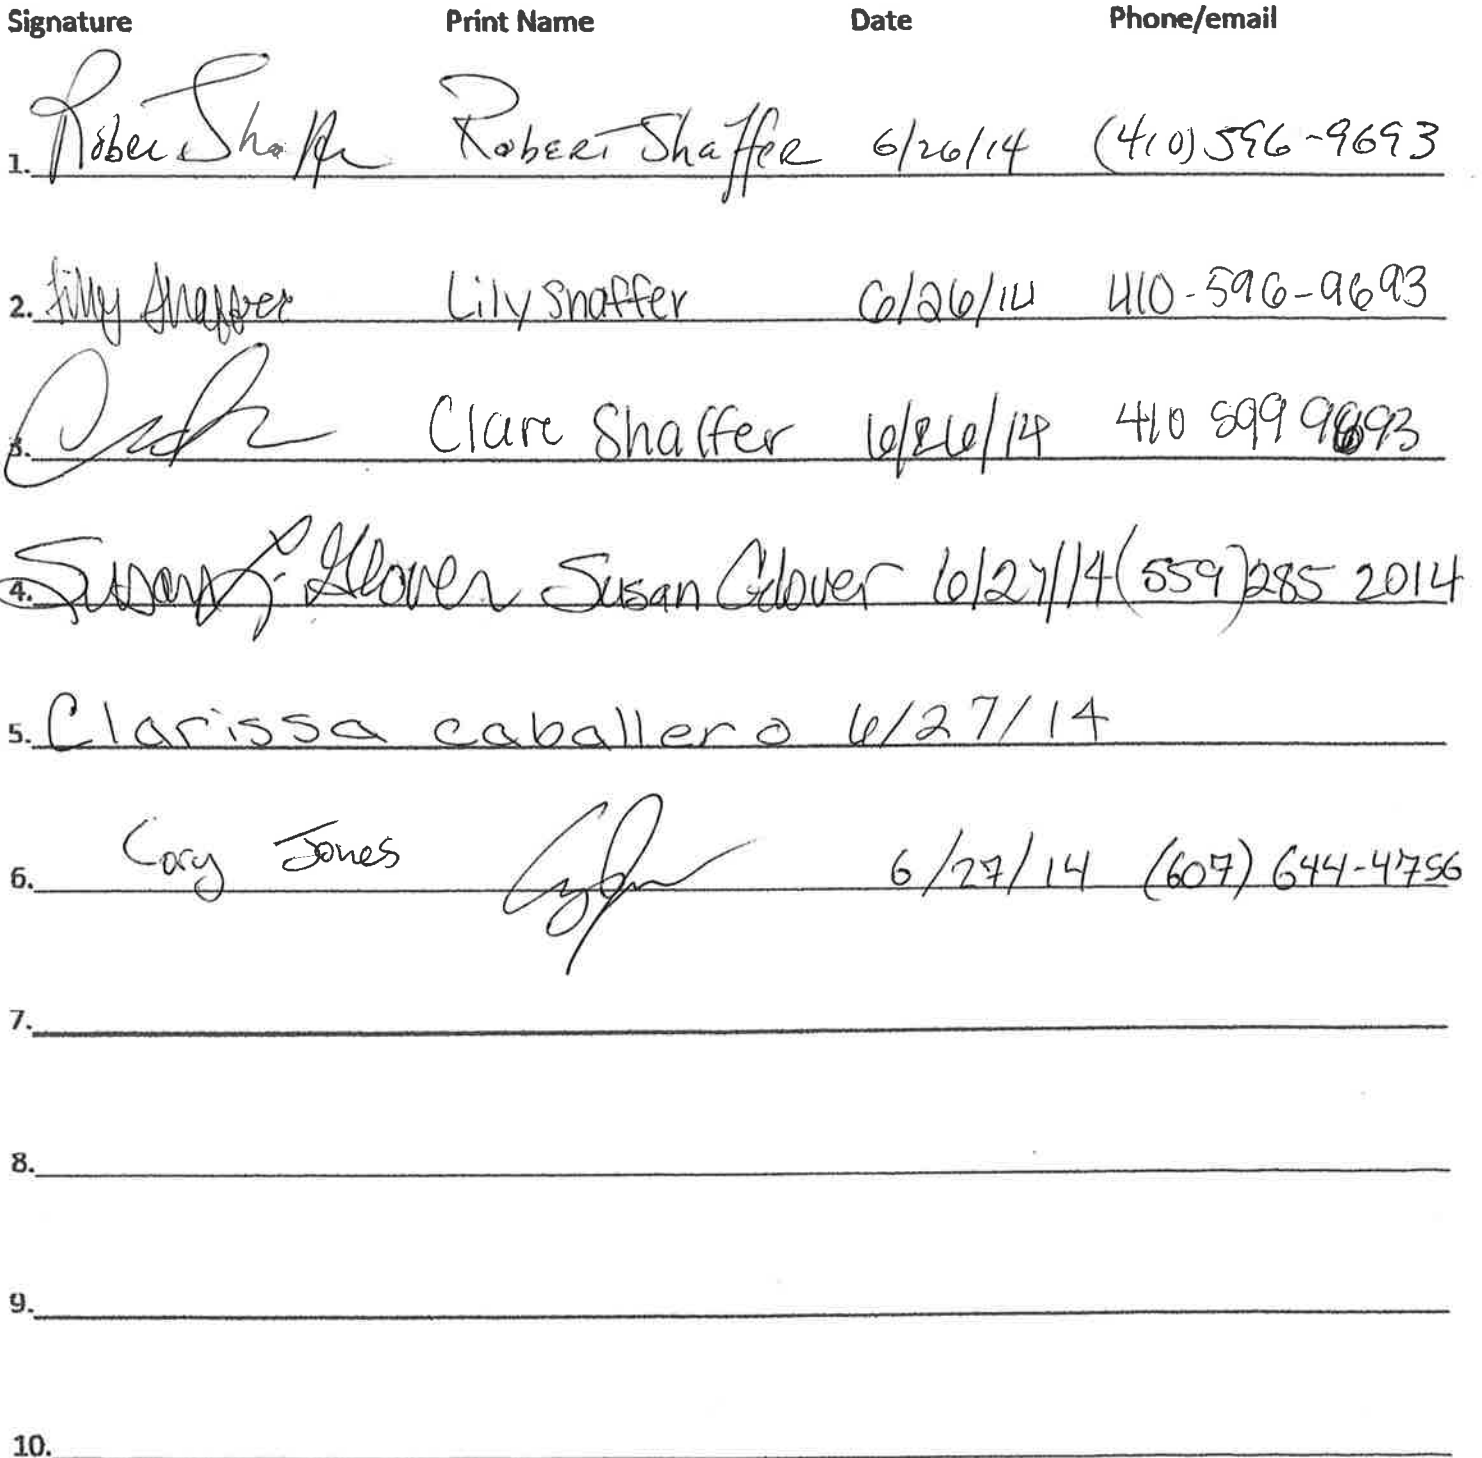 Signature Print Name Date Phone/email
1. Robert Shaffer Robert Shaffer 6/26/14 (410) 596-9693
2. Lilly Shaffer Lily Shaffer 6/26/14 410-596-9693
3. Clare Shaffer 6/26/14 410 599 9693
4. Susan L. Glover Susan Glover 6/27/14 (559) 285 2014
5. Clarissa caballero 6/27/14
6. Cory Jones 6/27/14 (607) 644-4756
7.
8.
9.
10.